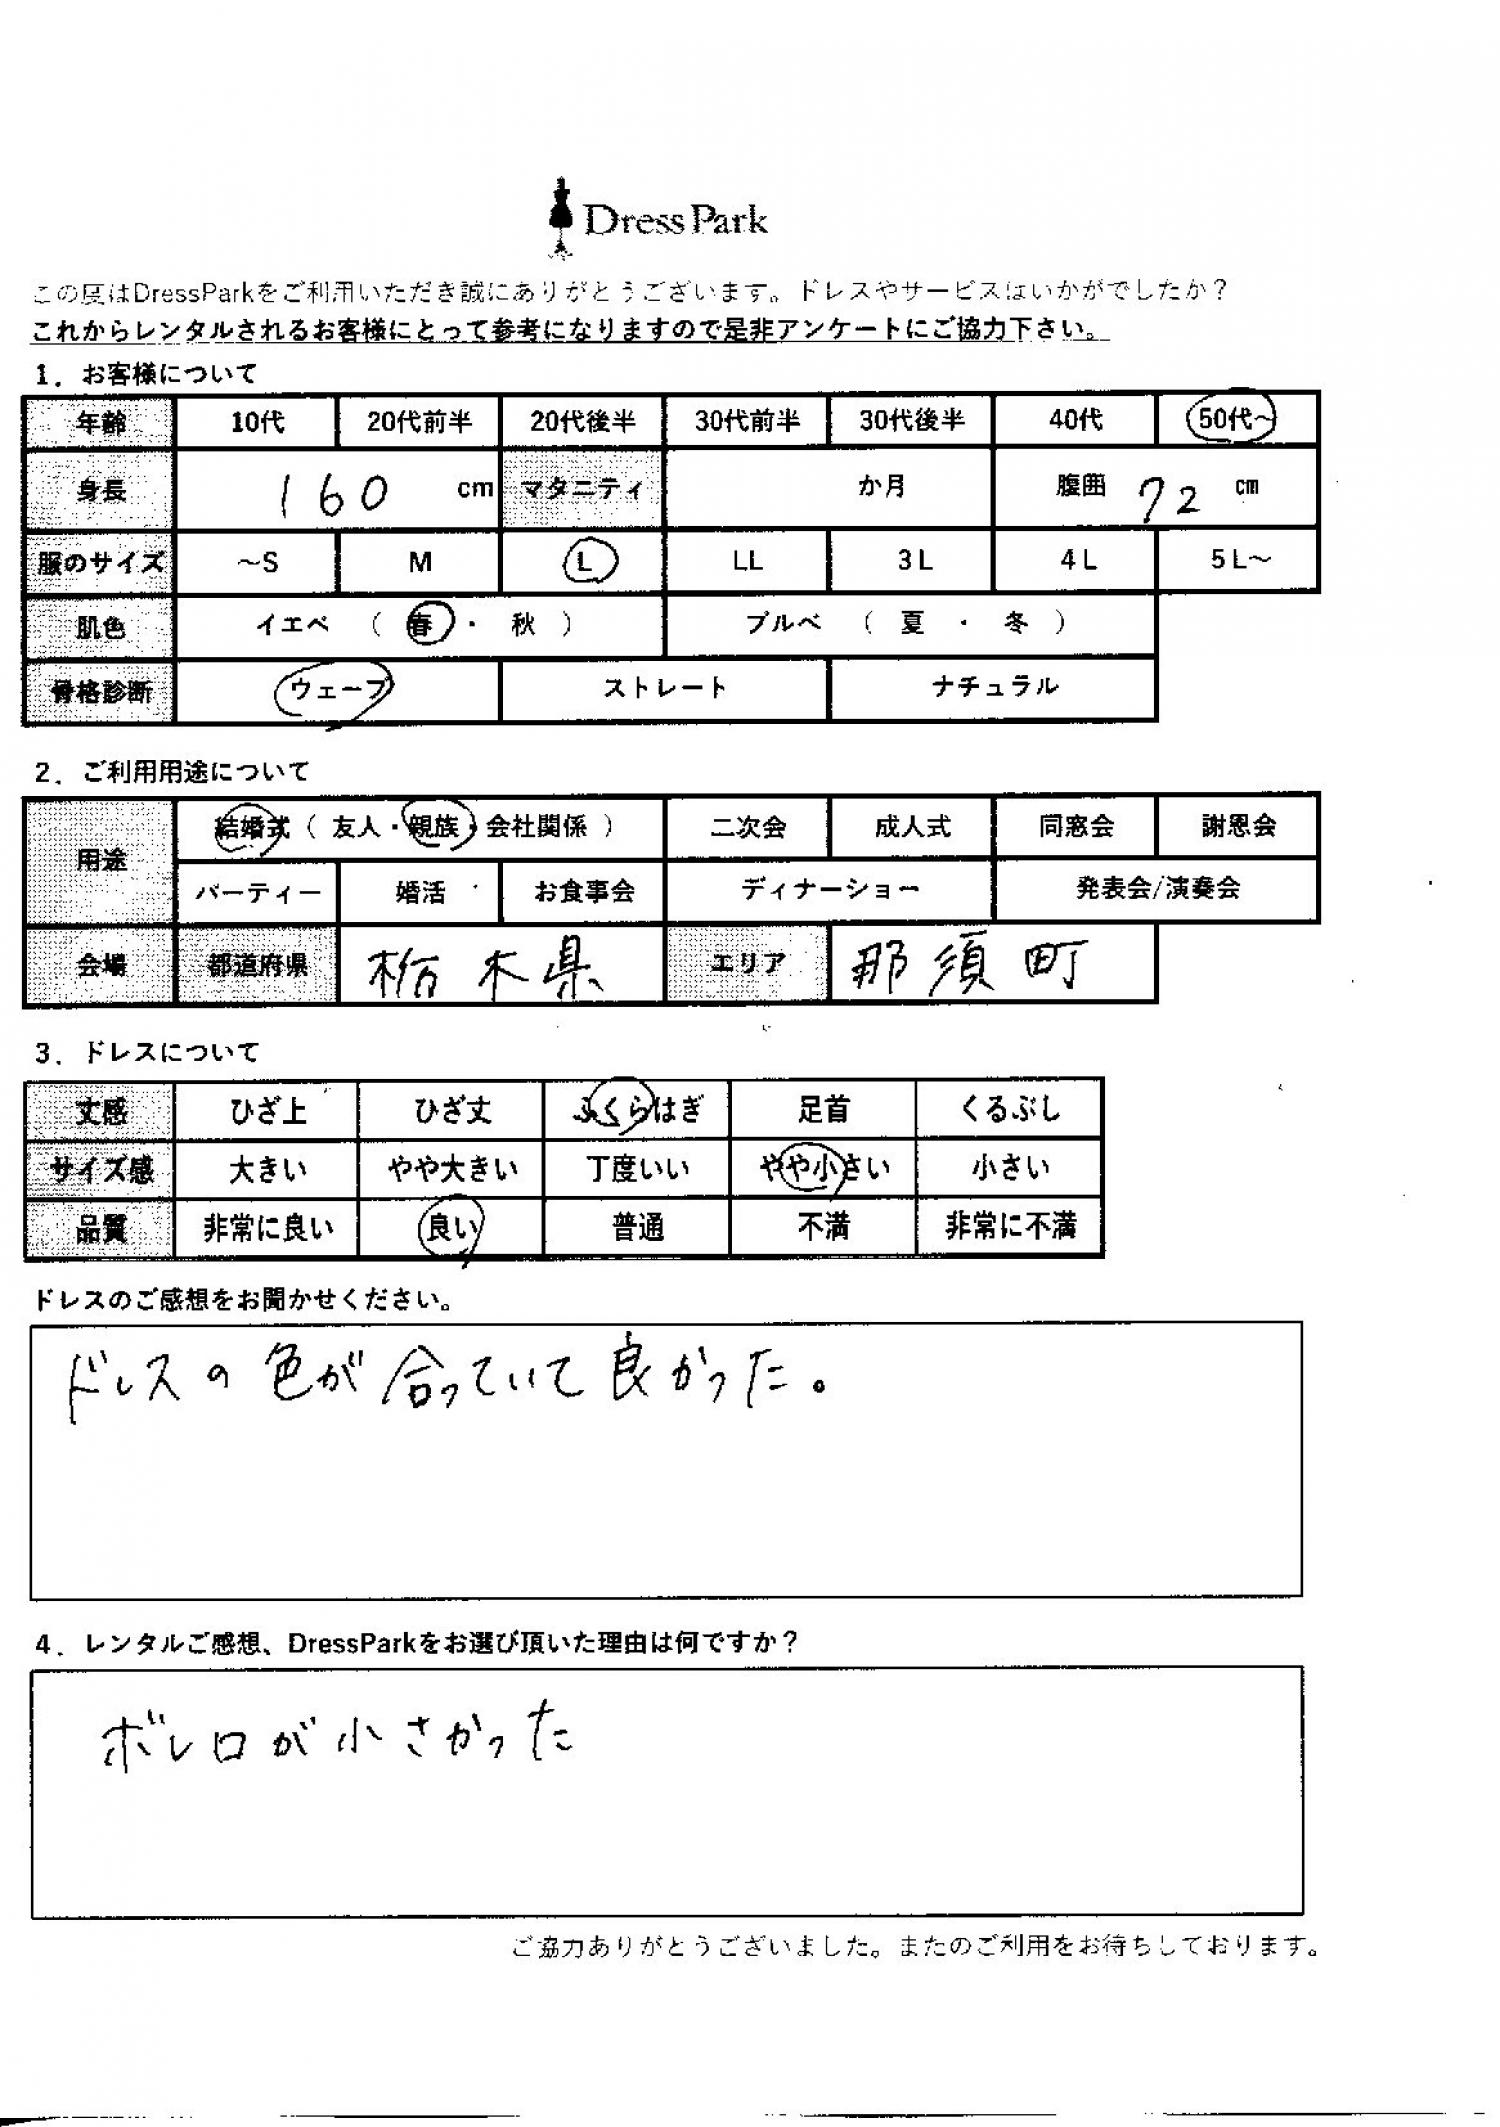 DressPark
この度はDressParkをご利用いただき誠にありがとうございます。ドレスやサービスはいかがでしたか？
これからレンタルされるお客様にとって参考になりますので是非アンケートにご協力下さい。
1．お客様について
年齢 10代 20代前半 20代後半 30代前半 30代後半 40代 50代～
身長 160 cm マタニティ か月 腹囲 72 cm
服のサイズ ～S M L LL 3L 4L 5L～
肌色 イエベ （ 春 ・ 秋 ） ブルベ （ 夏 ・ 冬 ）
骨格診断 ウェーブ ストレート ナチュラル
2．ご利用用途について
用途 結婚式（ 友人・親族・会社関係 ） 二次会 成人式 同窓会 謝恩会
パーティー 婚活 お食事会 ディナーショー 発表会/演奏会
会場 都道府県 栃木県 エリア 那須町
3．ドレスについて
丈感 ひざ上 ひざ丈 ふくらはぎ 足首 くるぶし
サイズ感 大きい やや大きい 丁度いい やや小さい 小さい
品質 非常に良い 良い 普通 不満 非常に不満
ドレスのご感想をお聞かせください。
ドレスの色が合っていて良かった。
4．レンタルご感想、DressParkをお選び頂いた理由は何ですか？
ボレロが小さかった
ご協力ありがとうございました。またのご利用をお待ちしております。